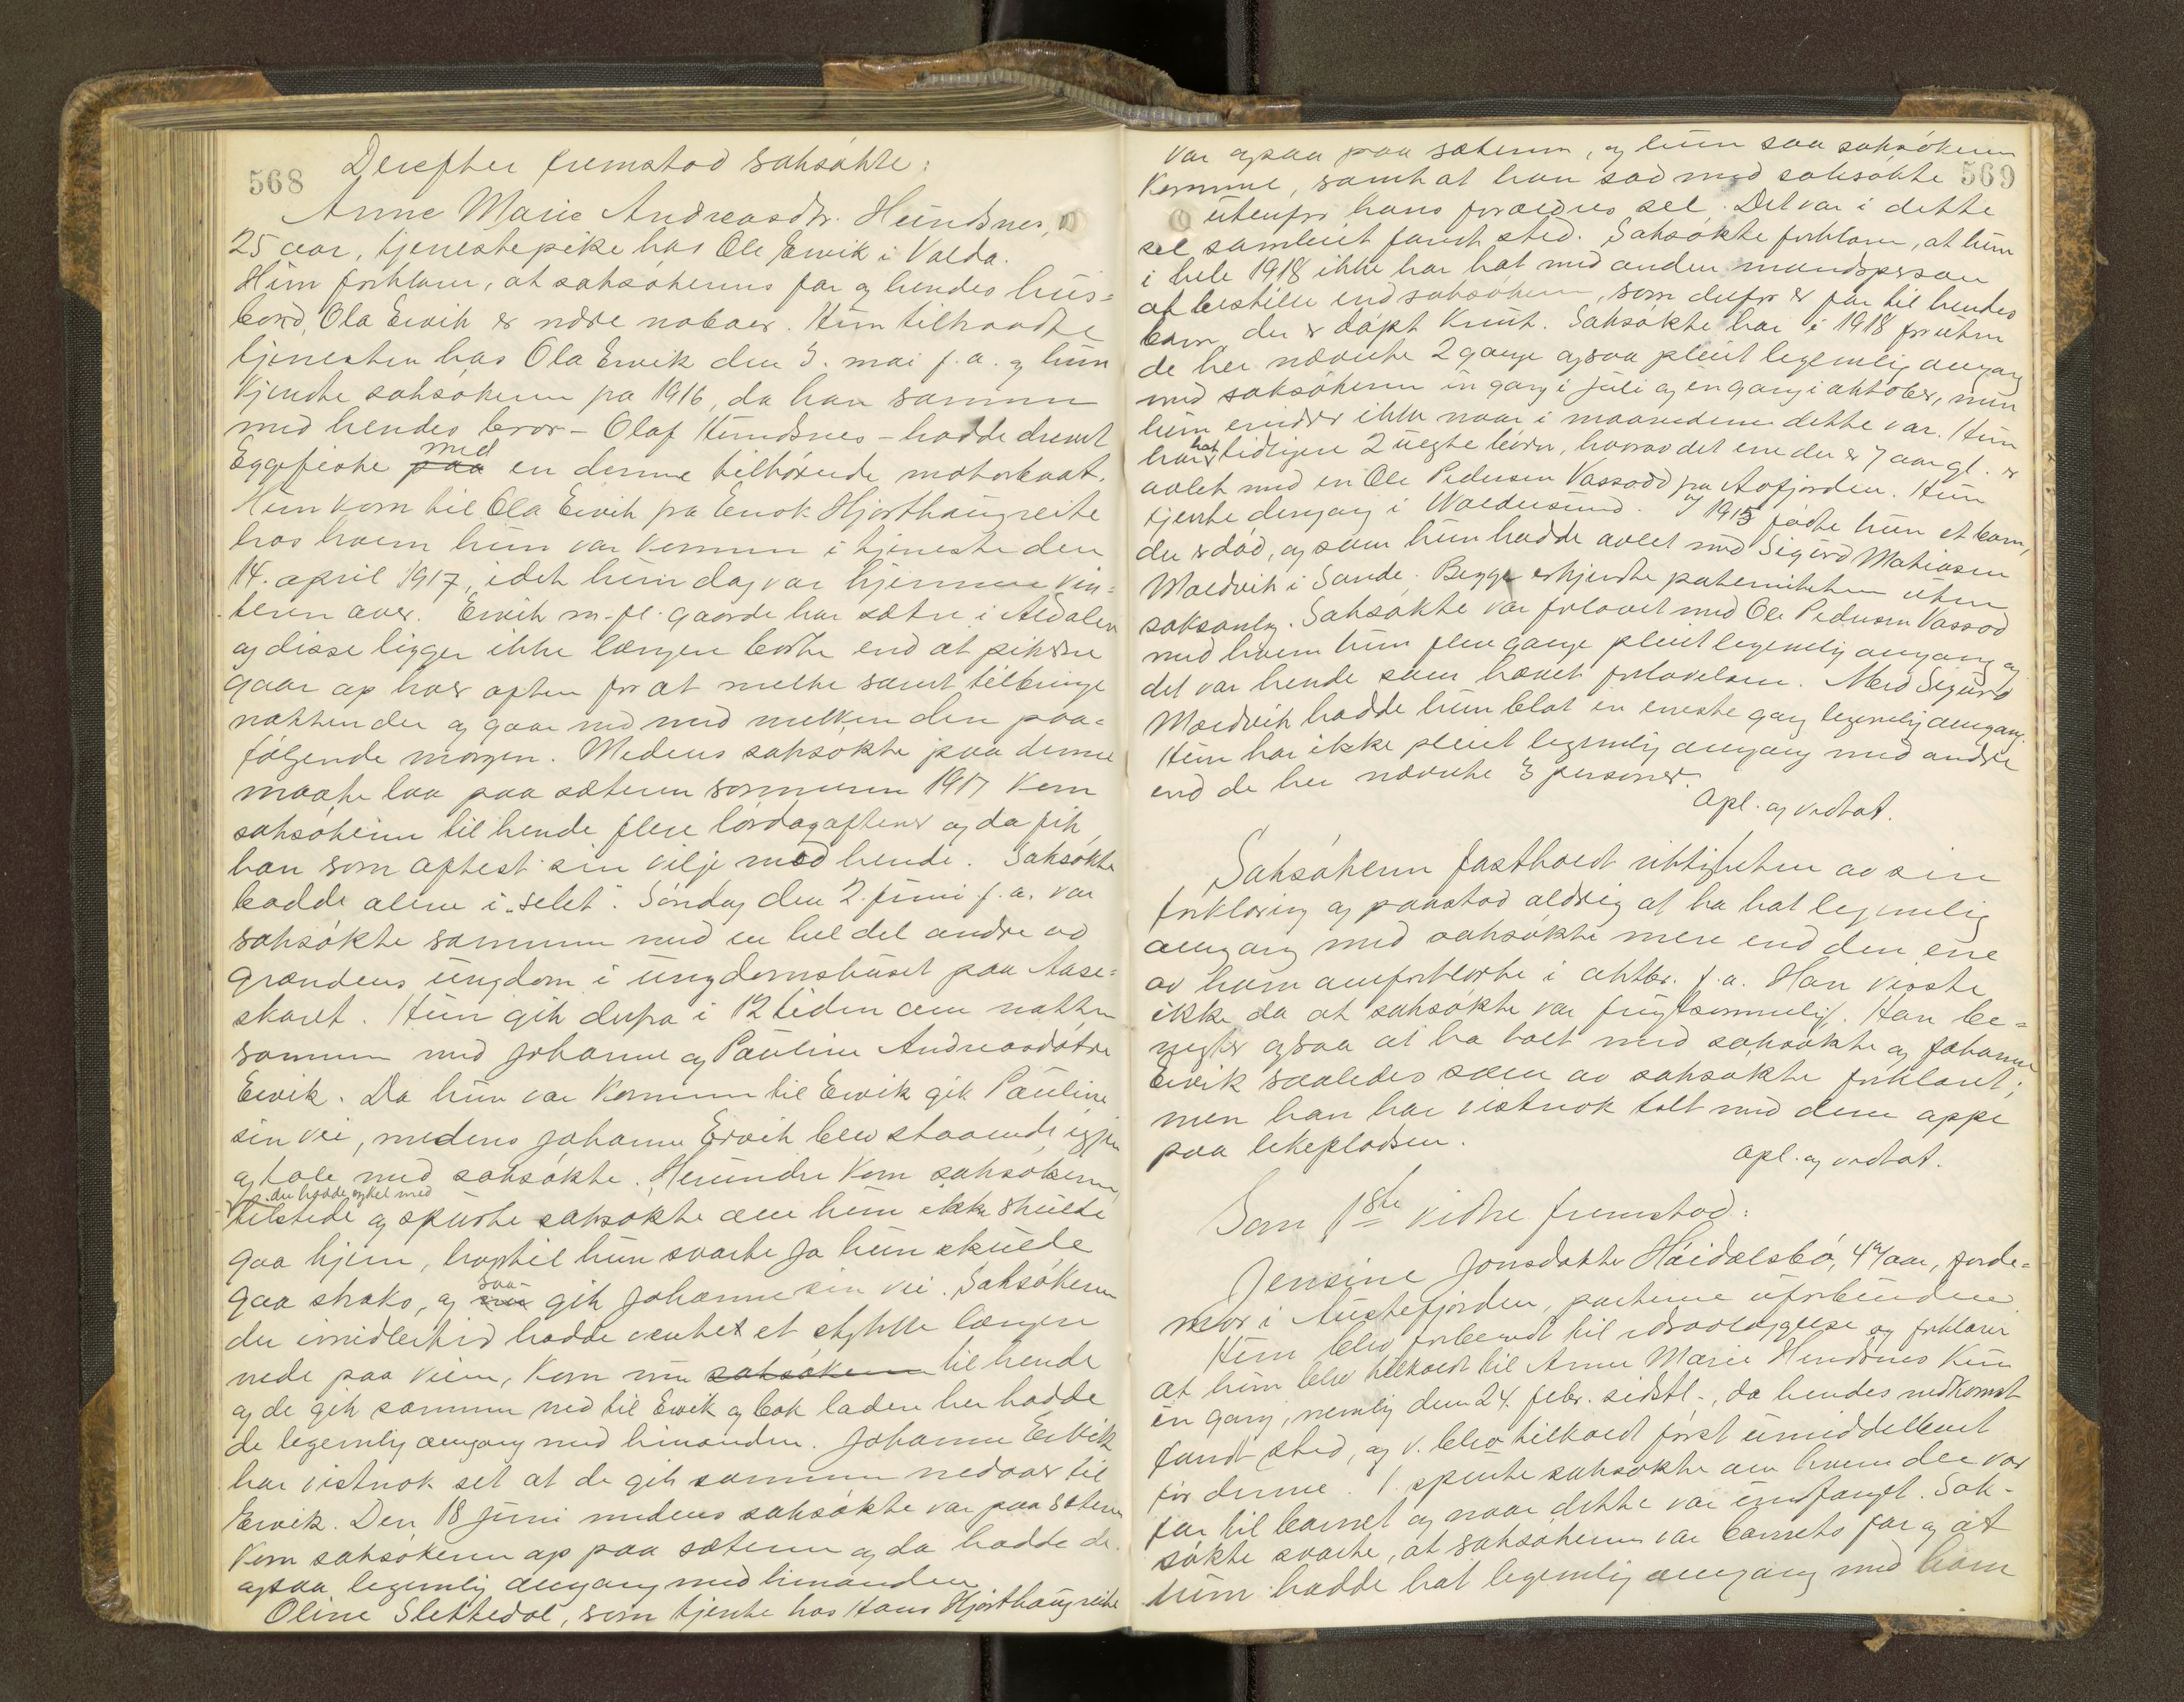 568
Derefter fremstod saksøkte:
Anne Marie Andreasdtr. Hundsnes,
25 aar, tjenestepike hos Ole Ervik i Volda.
Hun forklarer, at saksøkerens far og hendes hus=
bond, Ola Ervik er nære naboer. Hun tilhaadte
tjenesten hos Ola Ervik den 3. mai f.a. og hun
kjendte saksøkeren fra 1916, da han sammen
med hendes bror - Olaf Hundsnes - hadde drevet
Eggefiske paa med en denne tilhørende motorbaat.
Hun kom til Ola Ervik fra Enok Hjorthaugreite
hos hvem hun var kommen i tjeneste den
14. april 1917, idet hun dog var hjemme vin=
teren over. Ervik m.fl. gaarde har sæter i Aldalen
og disse ligger ikke længere borte end at pikerne
gaar op hver aften for at melke samt tilbringe
natten der og gaar ned med melken den paa=
følgende morgen. Medens saksøkte paa denne
maate laa paa sæteren sommeren 1917 kom
saksøkeren til hende flere lørdagaftener og da fik
han som oftest sin vilje med hende. Saksøkte
hadde alene i "selet". Søndag den 2. juni f.a. var
saksøkte sammen med en hel del andre av
grændens ungdom i ungdomshuset paa Aase=
skaret. Hun gik derfra i 12 tiden om natten
sammen med Johanne og Pauline Andreasdøtre
Ervik. Da hun var kommen til Ervik gik Pauline
sin vei, medens Johanne Ervik blev staaende igjen
og tale med saksøkte. Herunder kom saksøkeren,
der hadde cykel med
tilstede og spurte saksøkte om hun ikke skulde
gaa hjem, hvortil hun svarte ja hun skulde
gaa straks, og saa gik Johanne sin vei. Saksøkeren
der imidlertid hadde ventet et stykke længere
nede paa veien, kom nu saksøkeren til hende
og de gik sammen ned til Ervik og bak laden her hadde
de legemlig omgang med hinanden. Johanne Ervik
har vistnok set at de gik sammen nedover til
Ervik. Den 18 juni medens saksøkte var paa sæteren
kom saksøkeren op paa sæteren og da hadde de
ogsaa legemlig omgang med hinanden.
Oline Slettedal, som tjente hos Hans Hjorthaugreite
569
var ogsaa paa sæteren, og hun saa saksøkeren
komme, samt at han sad med saksøkte
utenfor hans forældres sel. Det var i dette
sel samleiet fandt sted. Saksøkte forklarer, at hun
i hele 1918 ikke har hat med anden mandsperson
at bestille end saksøkeren, som derfor er far til hendes
barn, der er døpt Knut. Saksøkte har i 1918 foruten
de her nævnte 2 gange ogsaa pleiet legemlig omgang
med saksøkeren en gang i juli og en gang i oktober, men
hun erindrer ikke naar i maanedene dette var. Hun
har hat tidligere 2 uegte børn, hvorav det ene der er 7 aar gl. er
avlet med en Ole Pedersen Vassod fra Aafjorden. Hun
tjente dengang i Valdersund. I 1915 fødte hun et barn,
der er død, og som hun hadde avlet med Sigurd Matiasen
Moldvik i Sande. Begge erkjendte paterniteten uten
saksanlæg. Saksøkte var forlovet med Ole Pedersen Vassod
med hvem hun flere gange pleiet legemlig omgang og
det var hende som hævet forlovelsen. Med Sigurd
Moldvik hadde hun blot en eneste gang legemlig omgang.
Hun har ikke pleiet legemlig omgang med andre
end de her nævnte 3 personer.
Opl. og vedtat.
Saksøkeren fastholdt riktigheten av sin
forklaring og paastod aldrig at ha hat legemlig
omgang med saksøkte mere end den ene
av ham omforklarte i oktbr. f.a. Han visste
ikke da at saksøkte var frugtsommelig. Han be=
negter ogsaa at ha talt med saksøkte og Johanne
Ervik saaledes som av saksøkte forklaret;
men han har vistnok talt med dem oppe
paa lekepladsen.
Opl. og vedtat.
Som 1ste vidne fremstod:
Jensine Jonsdatter Høidalsbø, 42 aar, jorde=
mor i Austefjorden, parterne uforbundne.
Hun blev forberedt til edsavlæggelse og forklarer
at hun blev tilkaldt til Anne Marie Hundsnes kun
en gang, nemlig den 24. febr. sidstl., da hendes nedkomst
fandt sted, og v. blev tilkaldt først umiddelbart
før denne. V. spurte saksøkte om hvem der var
far til barnet og naar dette var undfanget. Sak-
søkte svarte, at saksøkeren var barnets far og at
hun hadde hat legemlig omgang med ham